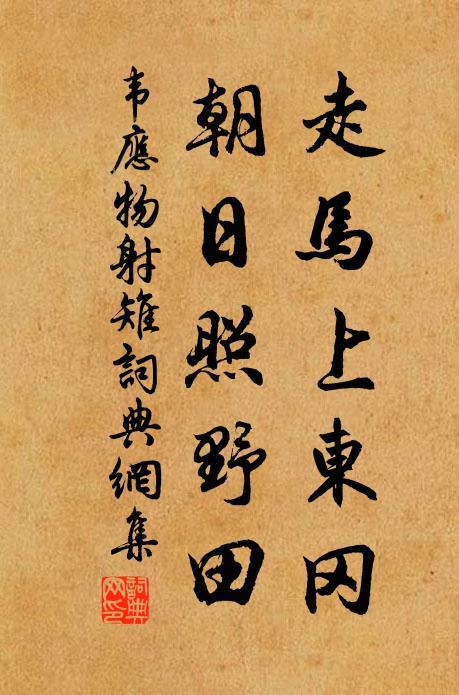 走馬上東冈
朝日照野田
韦應物射雉詞典網集
詞典网印